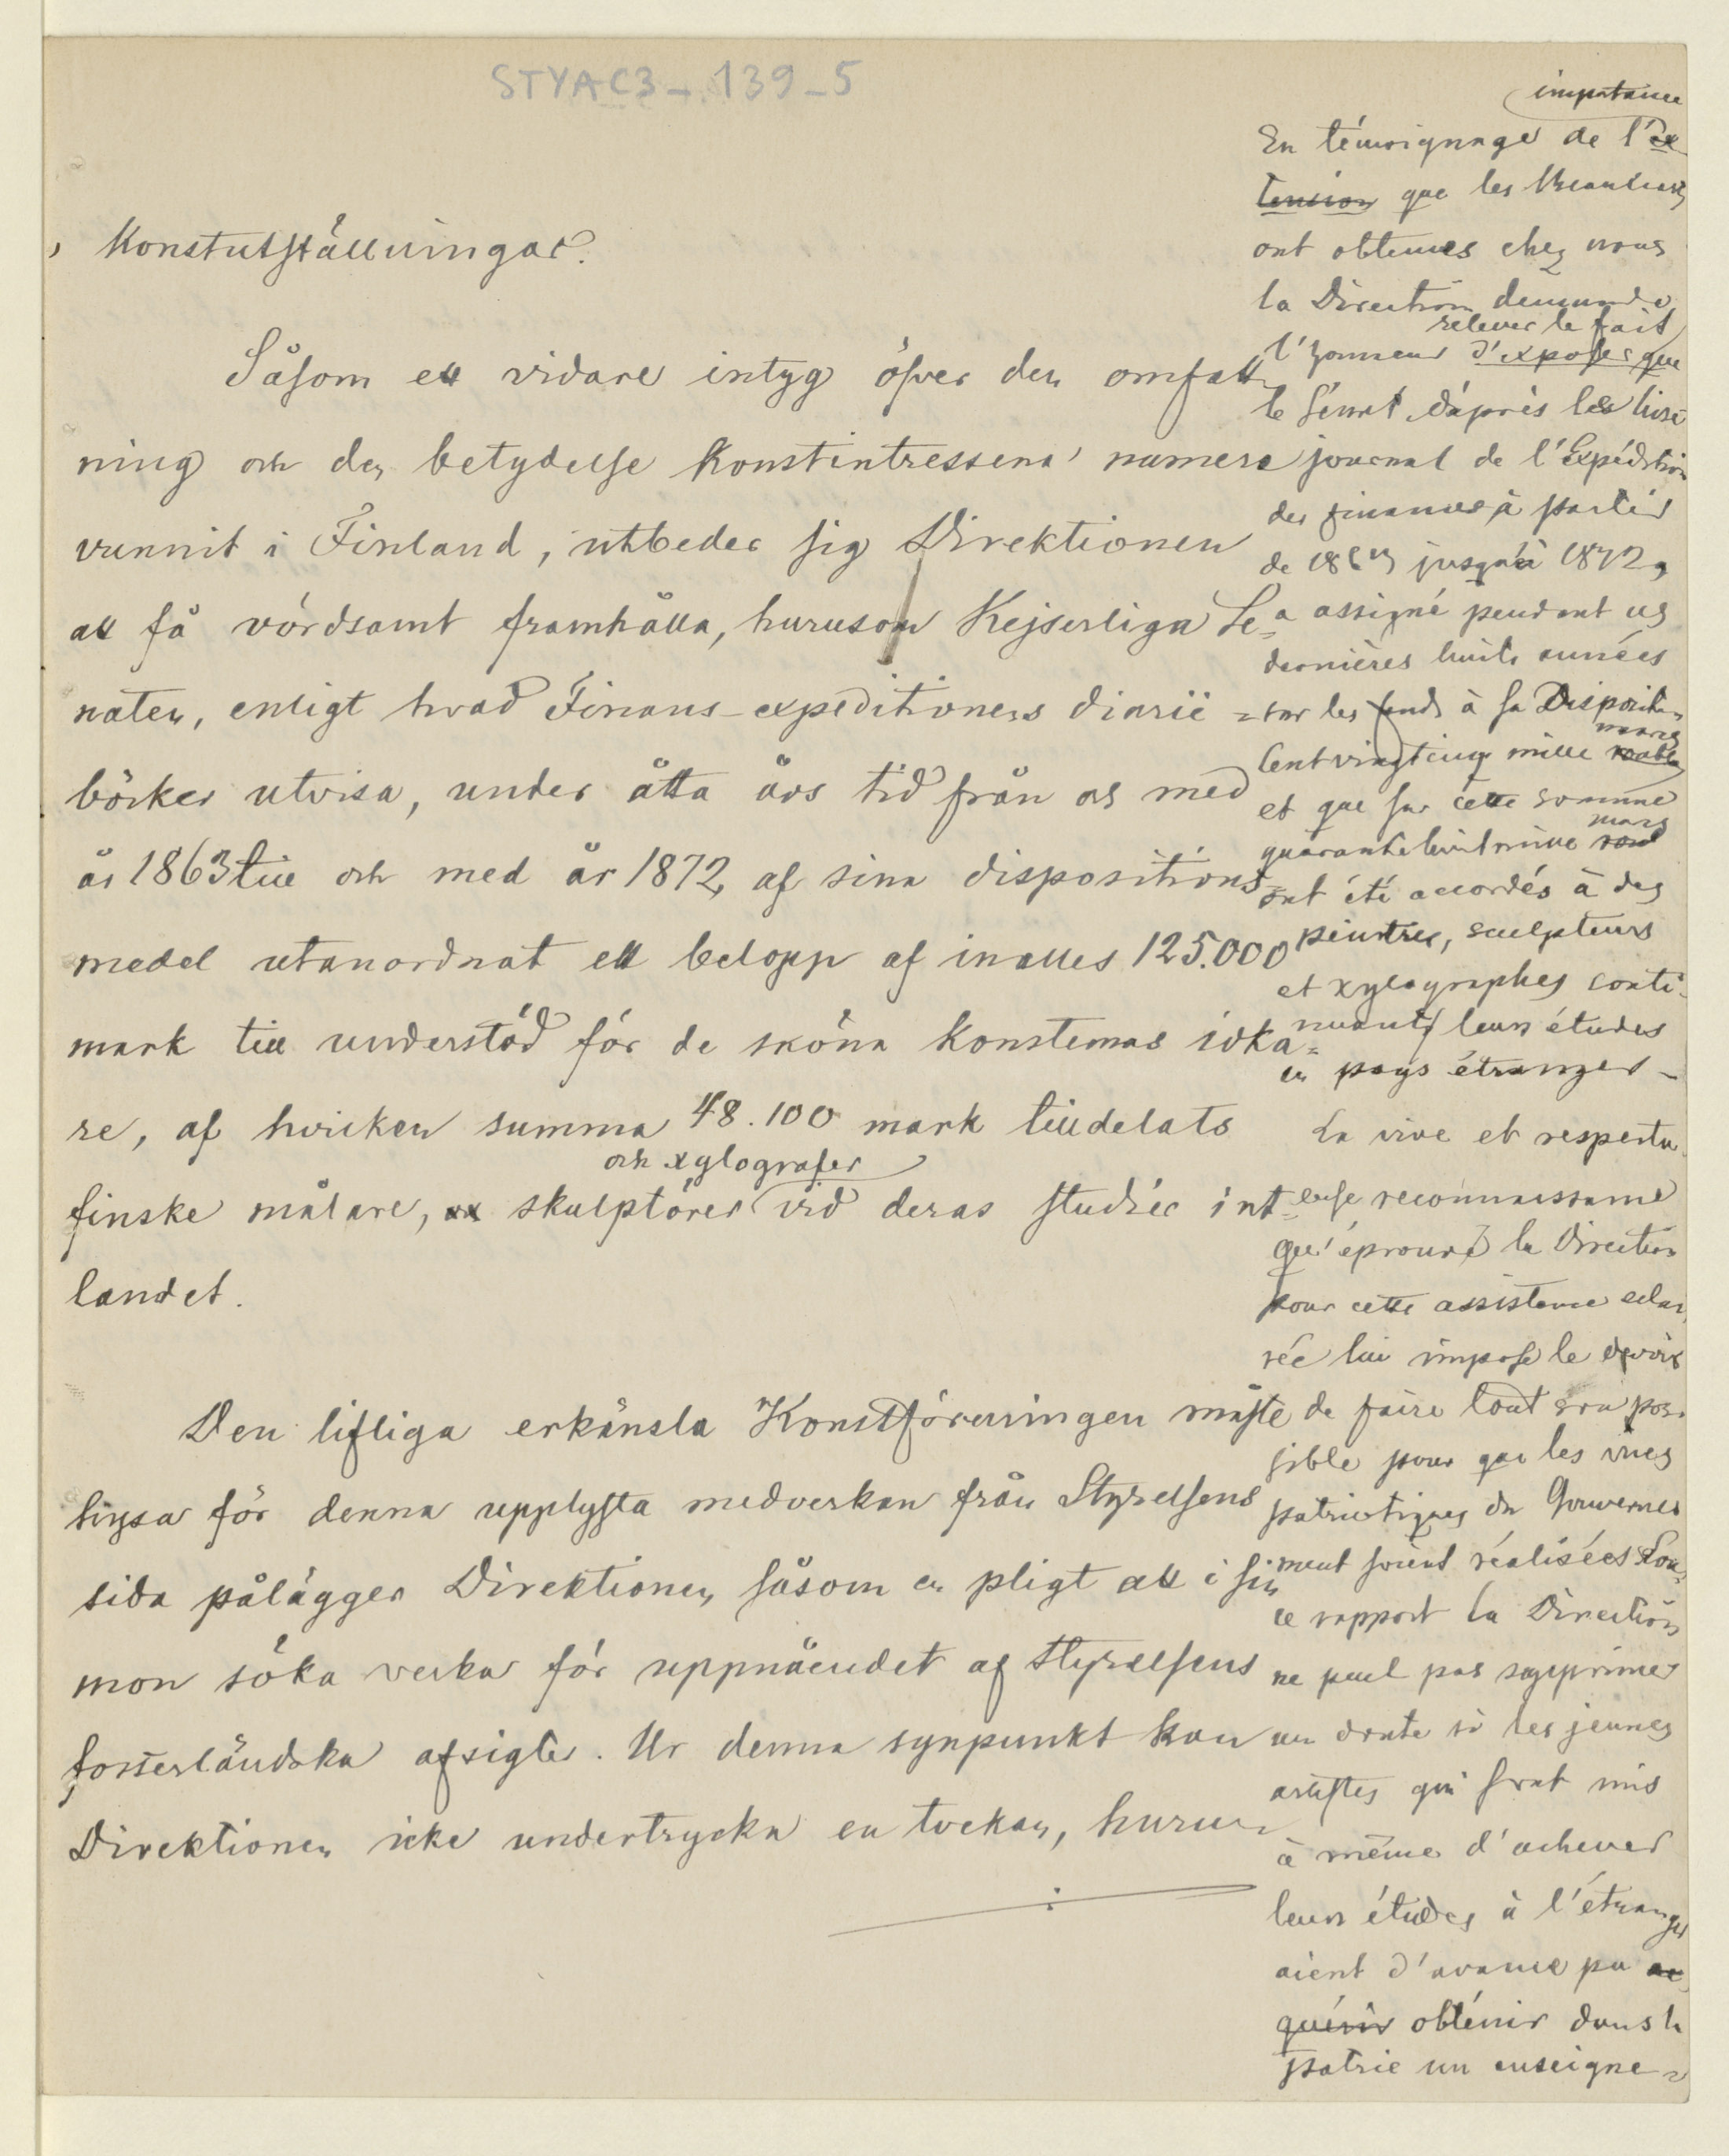 STYAC3_139_5
Konstutställningar.
Såsom ett vidare intyg öfver den omfatt-
ning och den betydelse konstintressena numera
vunnit i Finland, utbeder sig Direktionen
att få vördsamt framhålla, hurusom Kejserliga Se=
naten, enligt hvad Finans-expeditionens diarii=
böcker utvisa, under åtta års tid från och med
år 1863 till och med år 1872, af sina dispositions=
medel utanordnat ett belopp af inalles 125.000
mark till understöd för de sköna konsternas idka=
re, af hvilken summa 48.100 mark tilldelats
och xylografer
finske målare, skulptörer vid deras studier i ut=
landet.
Den lifliga erkänsla Konstföreningen måste
hysa för denna upplysta medverkan från Styrelsens
sida pålägger Direktionen såsom en pligt att i sin
mon söka verka för uppnåendet af Styrelsens
fosterländska afsigter. Ur denna synpunkt kan
Direktionen icke undertrycka en tvekan, huru-
importance
En témoignage de l'ex
tension que les Beaux-arts
ont obtenues chez nous
la Direction demande
relever le fait
l'honneur d'exposer que
le Sénat d'après les livre
journal de l'Expédition
des finances à partir
de 1863 jusqu'à 1872,
a assigné pendant ces
dernières huit années
sur les fonds à sa Disposition
marcs
Cent vingt cinq mille
et que sur cette somme
marcs
quarante huit mille
ont été accordés à des
peintres, sculpteurs
et xylographes conti-
nuants leurs études
en pays étranger –
La vive et respectu
=euse reconnaissance
qu'éprouve la Direction
pour cette assistance eclai
rée lui impose le devoir
de faire tout son pos-
sible pour que les vues
patriotiques du Gouverne
ment soient réalisées Sous
ce rapport la Direction
ne peut pas supprimer
un doute si les jeunes
artistes qui sont mis
à même d'achever
leurs études à l'étranger
aient d'avance pu ac
quérir obtenir dans la
patrie un enseigne=